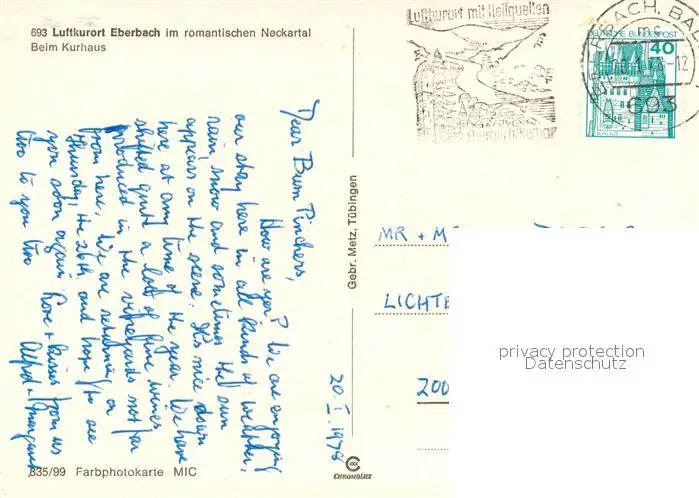 693 Luftkurort Eberbach im romantischen Neckartal
Beim Kurhaus
Luftkurort mit Heilquellen
DEUTSCHE BUNDESPOST
40
603
Dear Bum Pinchers,
How are you? We are enjoying
our stay here in all kinds of weather,
rain, snow and sometimes the sun
appears on the scene. It's nice down
here at any time of the year. We have
shifted quite a lot of fine wines
produced in the vineyards not far
from here. We are returning on
Thursday, the 26th and hope to see
you soon again. Love + kisses from us
two to you two
Alfred + Margaret
20.I.1978
Gebr. Metz, Tübingen
MR + M
LICHTE
200
privacy protection
Datenschutz
835/99 Farbphotokarte MIC
CHROMOLUX